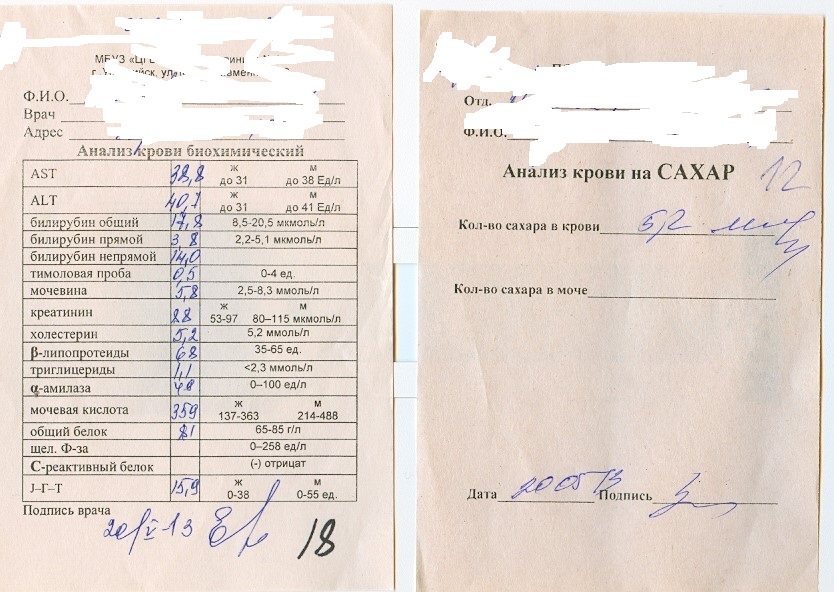 Ф.И.О.
Врач
Адрес
Анализ крови биохимический
AST 38,8 ж до 31 м до 38 Ед/л
ALT 40,7 ж до 31 м до 41 Ед/л
билирубин общий 17,8 8,5-20,5 мкмоль/л
билирубин прямой 3,8 2,2-5,1 мкмоль/л
билирубин непрямой 14,0
тимоловая проба 0,5 0-4 ед.
мочевина 5,8 2,5-8,3 ммоль/л
креатинин 88 ж 53-97 м 80–115 мкмоль/л
холестерин 5,2 5,2 ммоль/л
β-липопротеиды 68 35-65 ед.
триглицериды 1,1 <2,3 ммоль/л
α-амилаза 0–100 ед/л
мочевая кислота 359 ж 137-363 м 214-488
общий белок 81 65-85 г/л
щел. Ф-за 0–258 ед/л
С-реактивный белок (-) отрицат
J–Г–Т 15,9 ж 0-38 м 0-55 ед.
Подпись врача
20/V-13
18
Отд.
Ф.И.О.
Анализ крови на САХАР 12
Кол-во сахара в крови 5,2
Кол-во сахара в моче
Дата 200513 Подпись